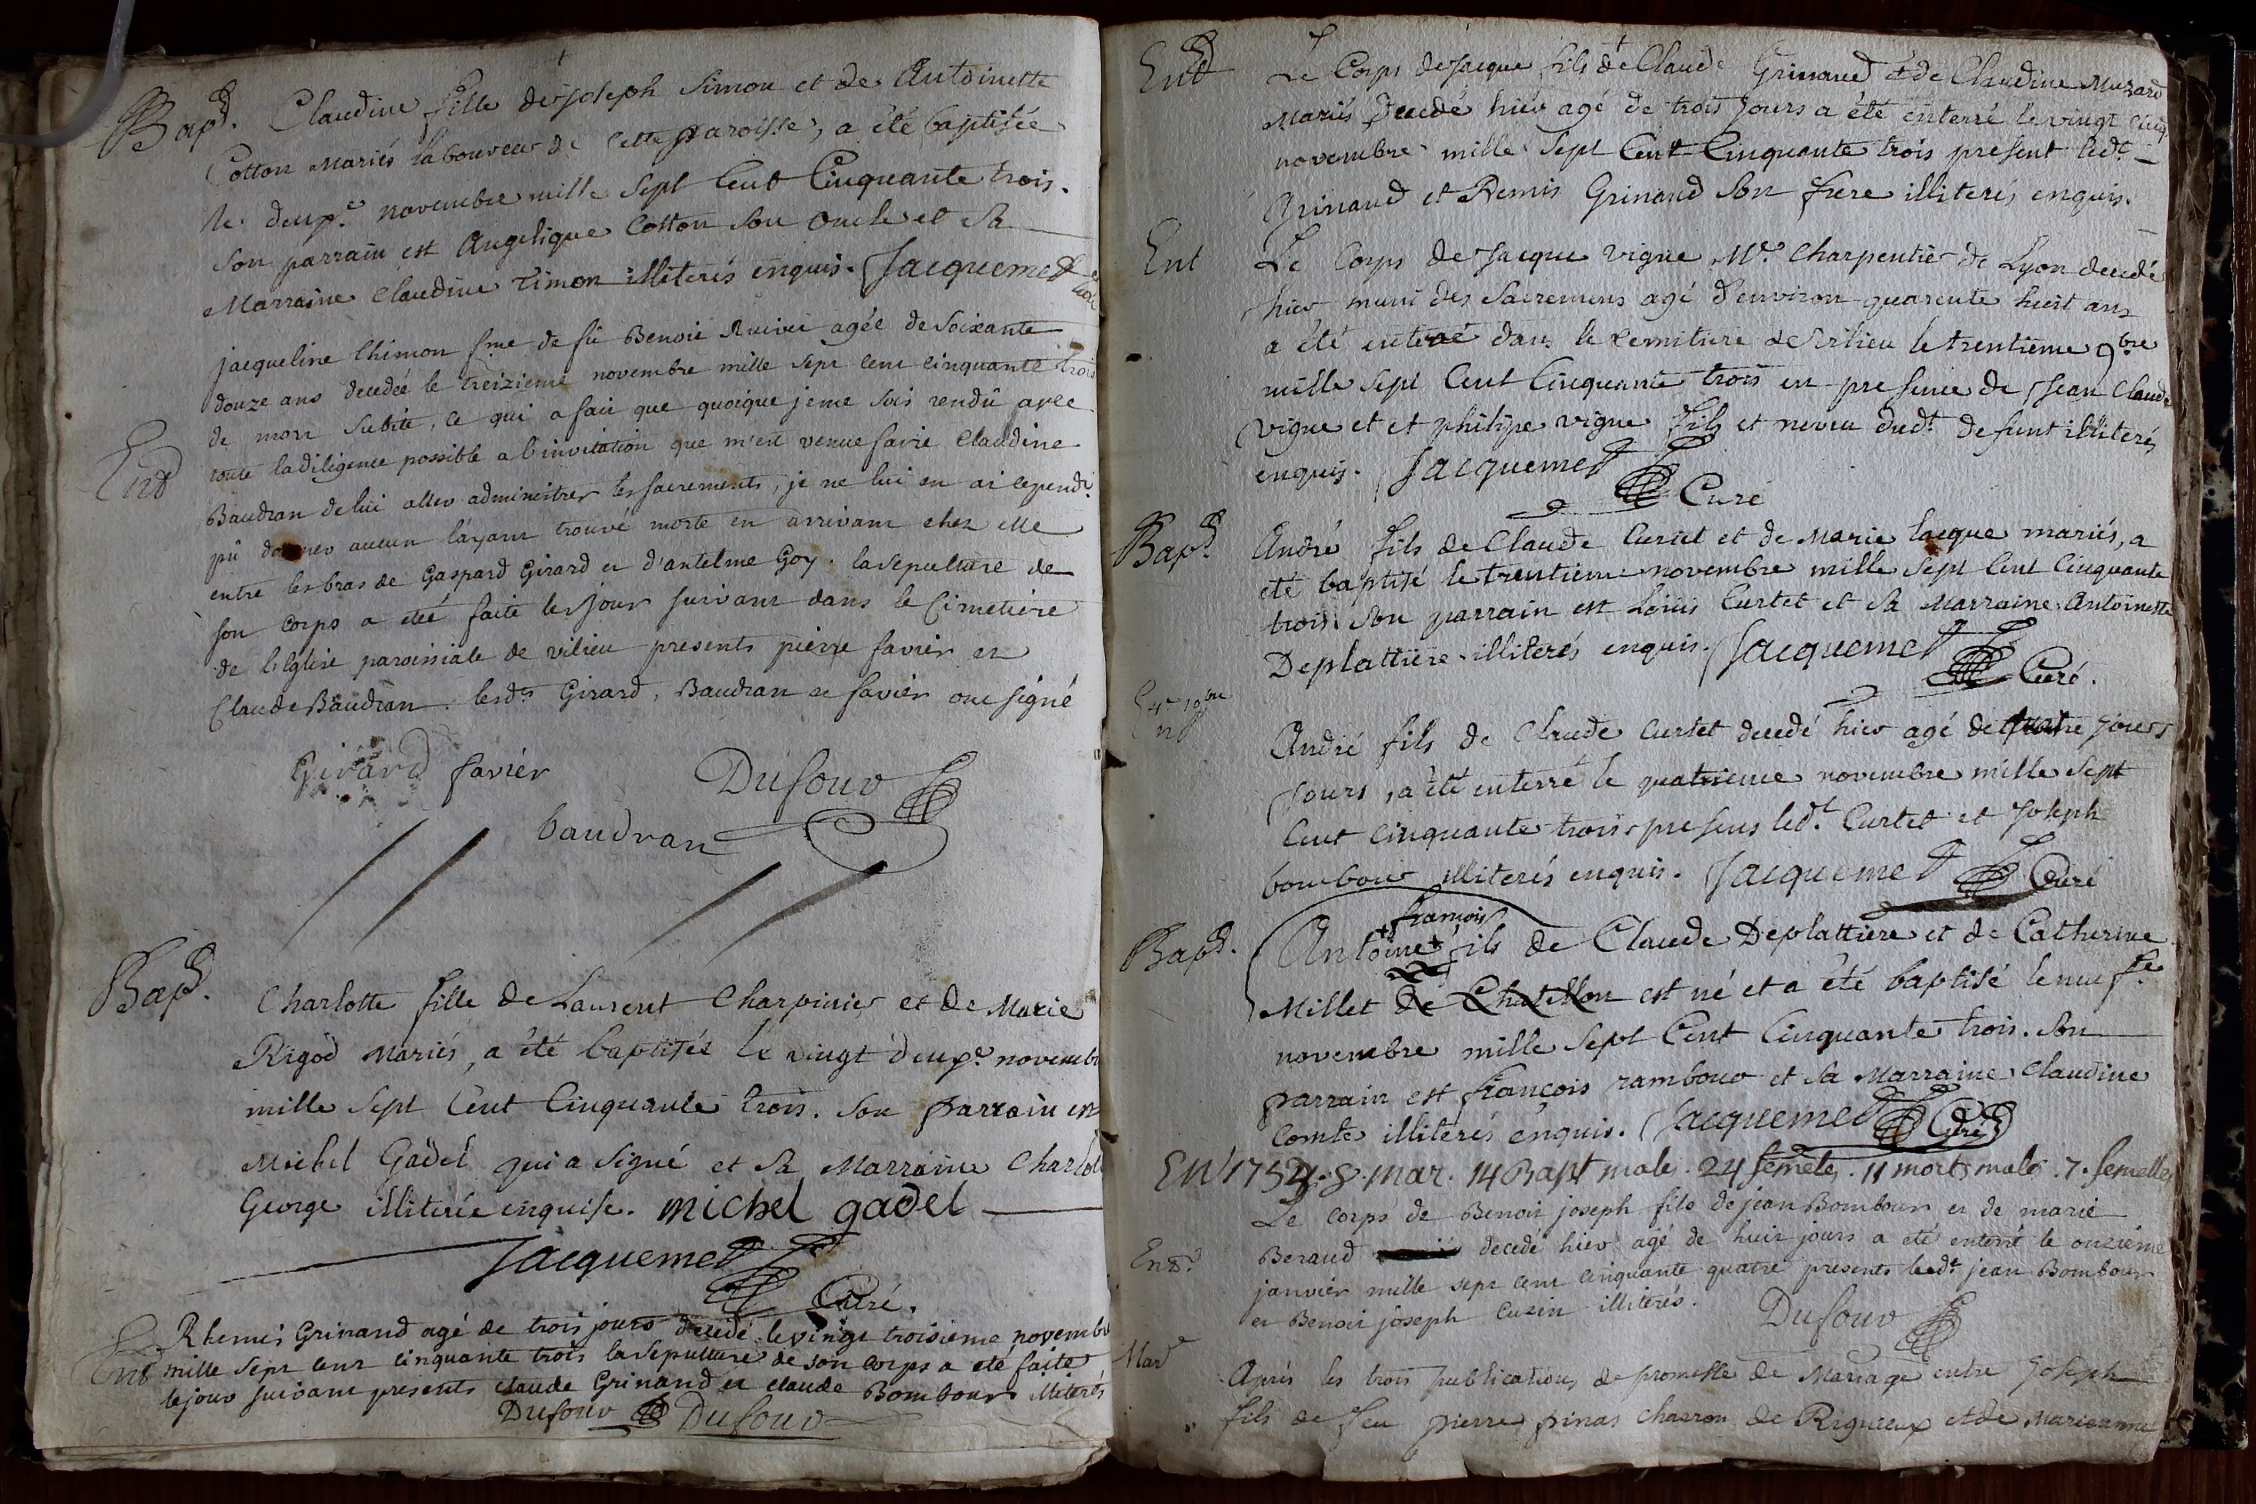 Bapd. Claudine fille de Joseph Simon et de Antoinette
Cotton Mariés laboureur de cette paroisse, a été baptisée
le deuxe. novembre mille sept Cent Cinquante trois.
Son parrain est Angelique Cotton son oncle et sa
Marraine Claudine Timon illiterés enquis. Jacquemet
jacqueline Chimon fme de fû Benoit agée de soixante
douze ans decedée le treizieme novembre mille sept cent cinquante trois
de mort subite, ce qui a fait que quoique je me sois rendû avec
Entd toute la diligence possible a l'invitation que m'est venue faire Claudine
Baudran de lui aller administrer les sacrements, je ne lui en ai cependt.
pû donner aucun l'ayant trouvé morte en arrivant chez elle
entre les bras de Gaspard Girard et d'antelme Goy. la sepulture de
son corps a eté faite le jour suivant dans le Cimetiere
de l'Eglise paroissiale de vilieu presents pierre favier et
Claude Baudran. lesdts Girard, Baudran et favier ont signé
Girard favier Dufour
baudran
Bapd. Charlotte fille de Laurent Charvinier et de Marie
Rigod Mariés, a été baptisée le vingt deuxe. novembre
mille sept Cent Cinquante trois. Son parrain est
Michel Gadel qui a signé et sa Marraine Charlot
George illiterée enquise. michel gadel
Jacquemet
Curé.
Rhemi Grinand agé de trois jours decedé le vingt troisieme novembre
Ent mille sept cent cinquante trois la sepulture de son corps a eté faite
le jour suivant presents claude Grinand et claude Bombour illiterés
Dufour Dufour
Entd Le Corps de Jacque fils de Claude Grinand et de Claudine Muzard
Mariés Decedé hier agé de trois Jours a été enterré le vingt cinq
novembre mille Sept Cent Cinquante trois present ledt.
Grinand et Remis Grinand Son frere illiterés enquis.
Ent Le Corps de Jacque vigne Me. Charpentier de Lyon decedé
hier muni des Sacremens agé d'environ quarente huit ans
a été enterré dans le cemitiere de vilieu le trentieme 9bre
mille sept Cent Cinquante trois en presence de Jean Claude
vigne et et philipe vigne fils et neveu dudt. defunt illiterés
enquis. Jacquemet
Curé
Bapd. André fils de Claude Curtet et de Marie Lacque mariés, a
été baptisé le trentieme novembre mille sept Cent Cinquante
trois. Son parrain est Loüis Curtet et sa Marraine Antoinette
Deplattiere illiterés enquis. Jacquemet
Curé.
4e 10bre
André fils de Claude Curtet decedé hier agé de quatre jours
Jours, a été enterré le quatrieme novembre mille sept
Cent Cinquante trois presens ledt. Curtet et Joseph
bombour illiterés enquis. Jacquemet Curé
françois
Bapd. Antoine fils de Claude Deplattiere et de Catherine
Millet de Chatillon est né et a été baptisé le neufe.
novembre mille Sept Cent Cinquante trois. Son
parrain est françois rambour et sa Marraine Claudine
Comte illiterés enquis. Jacquemet Curé
EN 1753. 8. mar. 14 Bapt male. 24 femele. 11 morts male. 7. femelle
Le corps de Benoit joseph fils de jean Bombour et de marie
Entd. Beraud decedé hier agé de huit jours a eté enterré le onzieme
janvier mille sept cent cinquante quatre presents ledt. jean Bombour
et Benoit joseph Cuzin illiterés. Dufour
Mard Après les trois publications de promesse de Mariage entre Joseph
fils de feu pierre pinas charron de Rignieux et de Marieanne